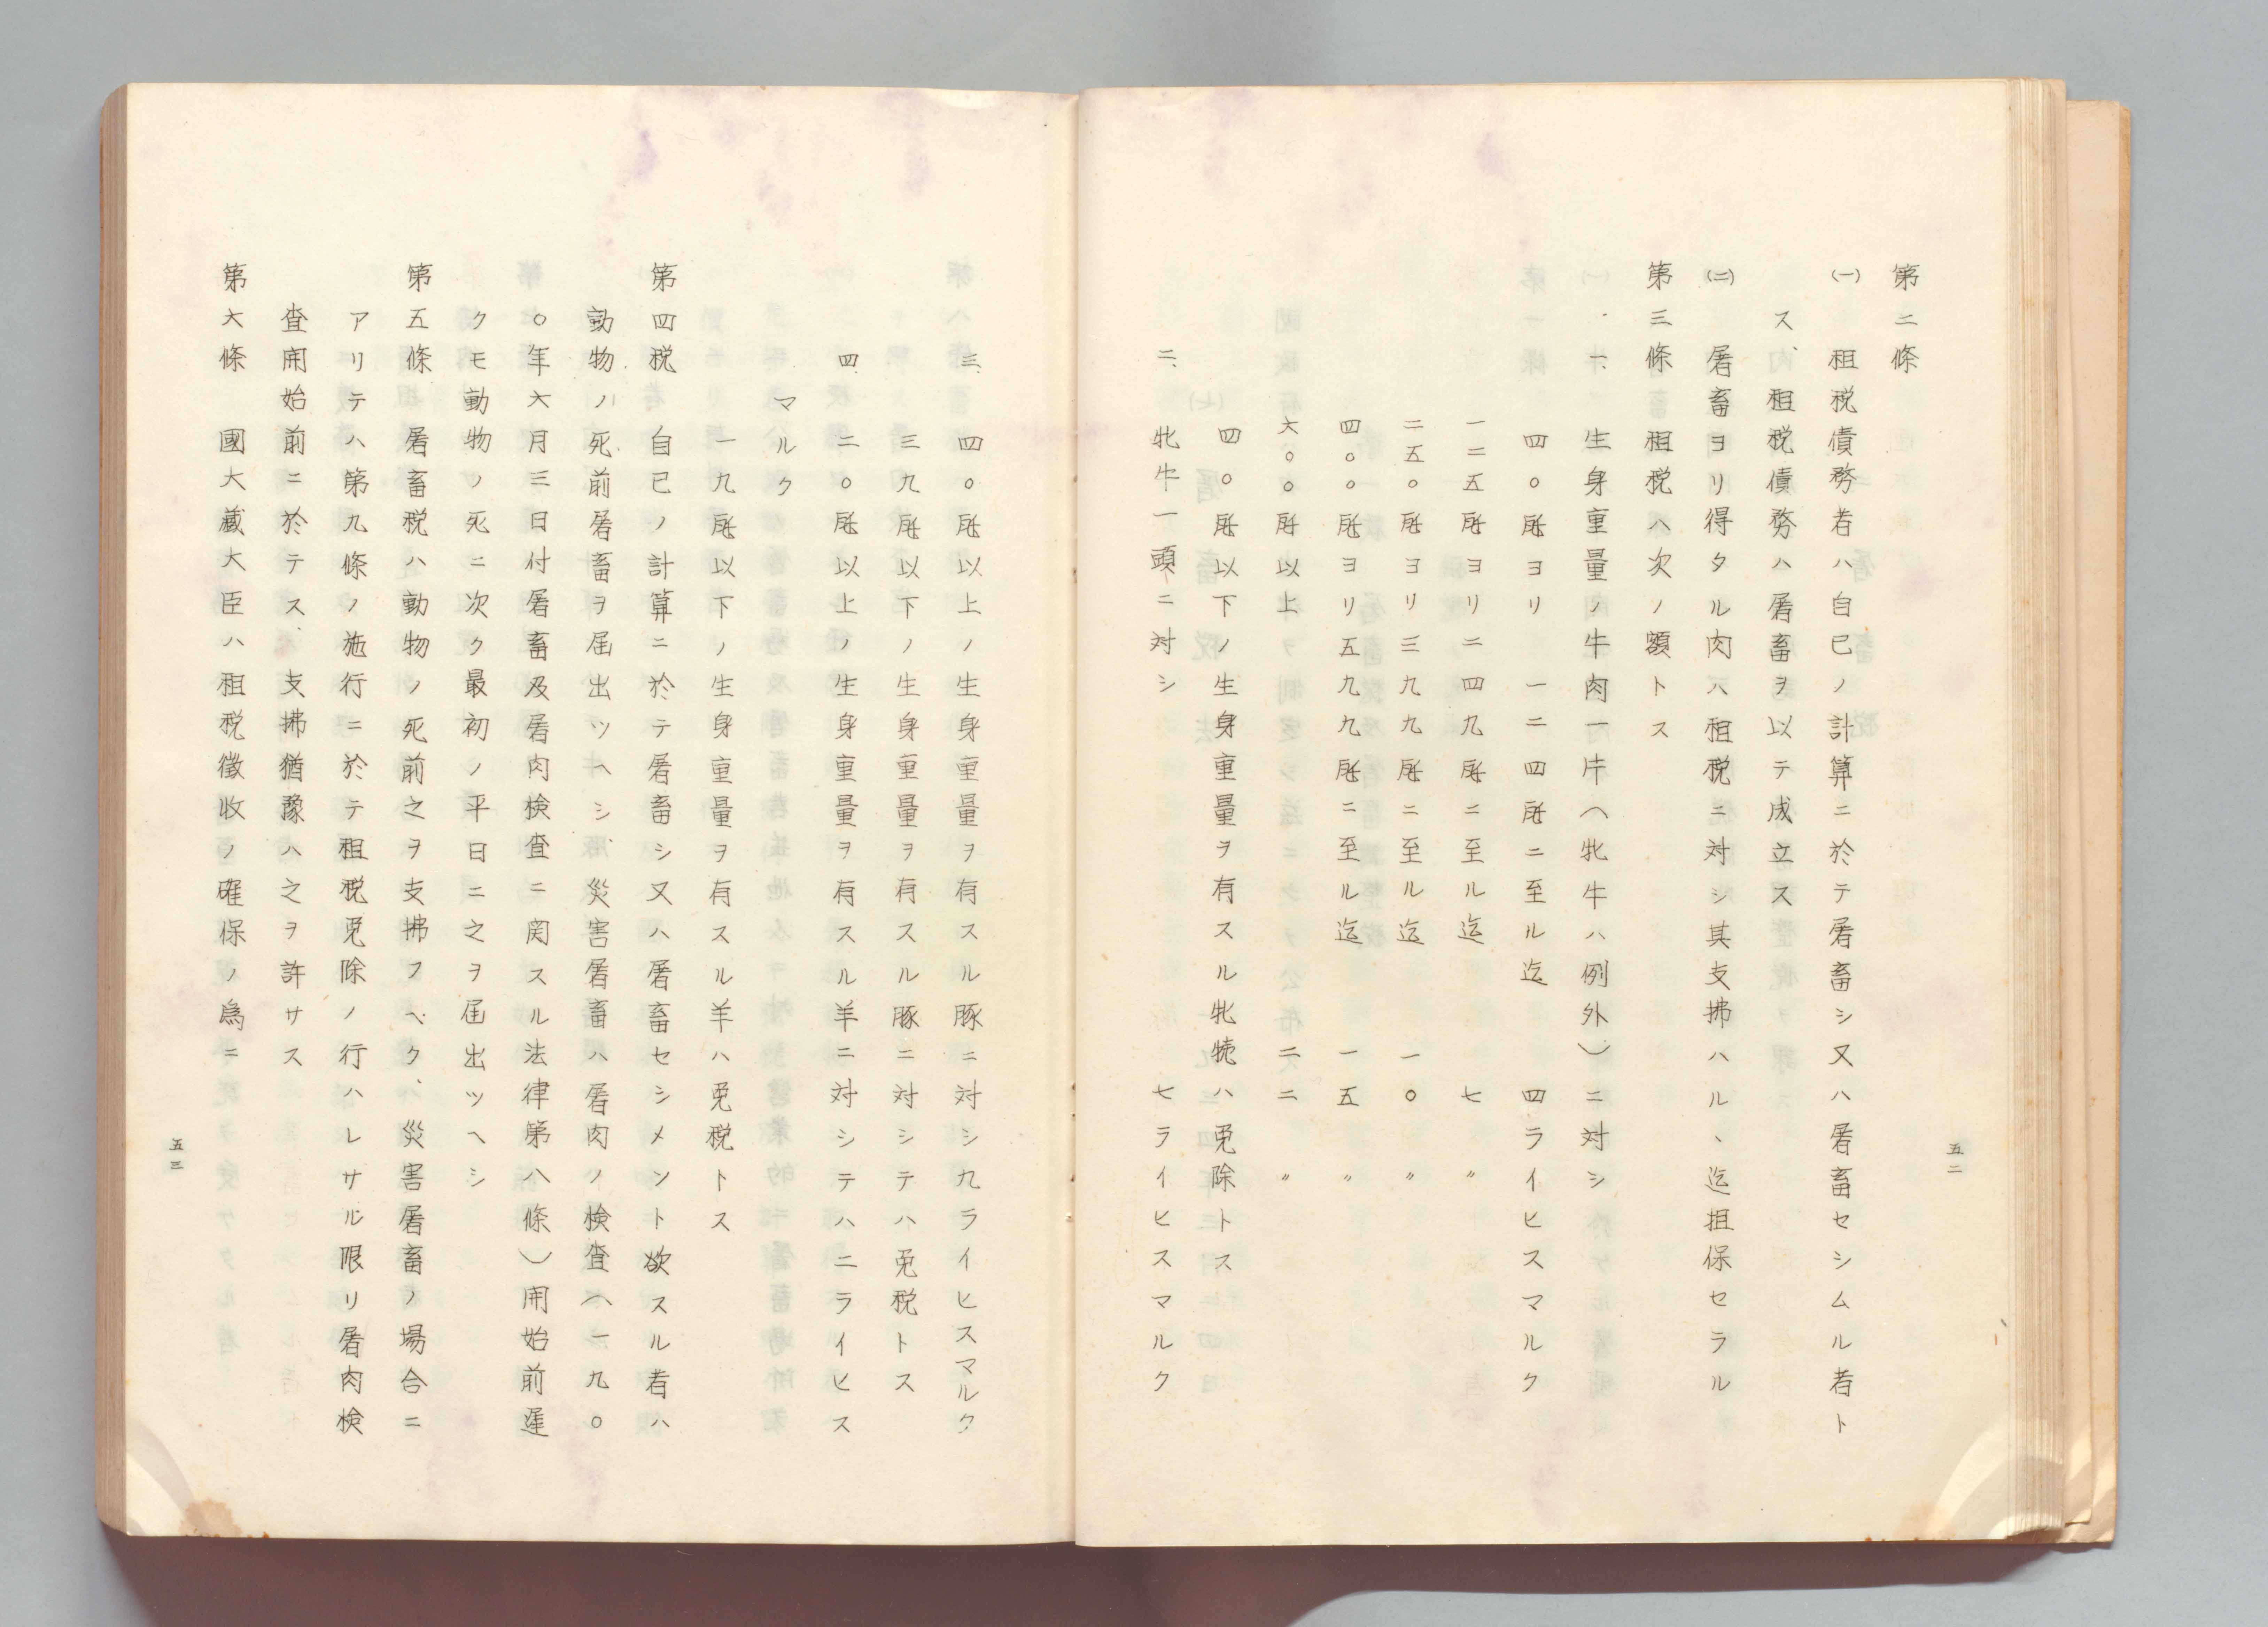 第二條
㈠ 租税債務者ハ自己ノ計算ニ於テ屠畜シ又ハ屠畜セシムル者ト
ス、租税債務ハ屠畜ヲ以テ成立ス
㈡ 屠畜ヨリ得タル肉ハ租税ニ対シ其支拂ハル、迄担保セラル
第三條 租税ハ次ノ額トス
一、生身重量ノ牛肉一片(牝牛ハ例外)ニ対シ
四〇瓩ヨリ 一二四瓩ニ至ル迄 四ライヒスマルク
一二五瓩ヨリ二四九瓩ニ至ル迄 七〃
二五〇瓩ヨリ三九九瓩ニ至ル迄 一〇〃
四〇〇瓩ヨリ五九九瓩ニ至ル迄 一五〃
六〇〇瓩以上 二二〃
四〇瓩以下ノ生身重量ヲ有スル牝犢ハ免除トス
二、牝牛一頭ニ対シ 七ライヒスマルク
五二
三、四〇瓩以上ノ生身重量ヲ有スル豚ニ対シ九ライヒスマルク
三九瓩以下ノ生身重量ヲ有スル豚ニ対シテハ免税トス
四、二〇瓩以上ノ生身重量ヲ有スル羊ニ対シテハニライヒス
マルク
一九瓩以下ノ生身重量ヲ有スル羊ハ免税トス
第四税 自己ノ計算ニ於テ屠畜シ又ハ屠畜セシメント欲スル者ハ
動物ノ死前屠畜ヲ届出ツヘシ、災害屠畜ハ屠肉ノ検査(一九〇
〇年六月三日付屠畜及屠肉検査ニ関スル法律第八條)開始前遅
クモ動物ノ死ニ次ク最初ノ平日ニ之ヲ届出ツヘシ
第五條 屠畜税ハ動物ノ死前之ヲ支拂フヘク、災害屠畜ノ場合ニ
アリテハ第九條ノ施行ニ於テ租税免除ノ行ハレサル限リ屠肉検
査開始前ニ於テス、支拂猶豫ハ之ヲ許サス
第六條 國大蔵大臣ハ租税徴收ノ確保ノ為ニ
五三